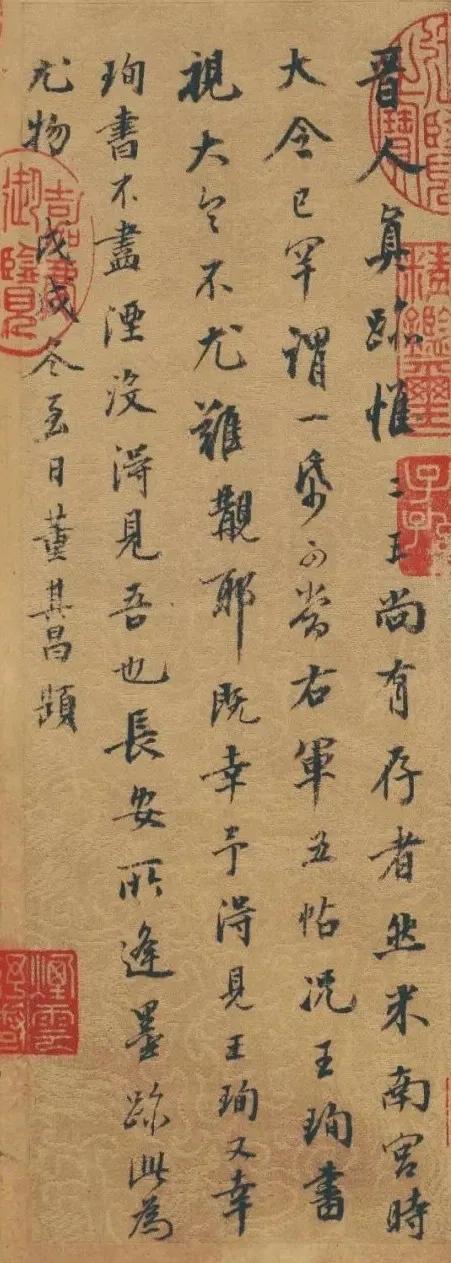 晋人真跡惟二王尚有存者然米南宮時
大令已罕謂一帋可當右軍五帖況王珣書
視大令不尤難覯耶既幸予得見王珣又幸
珣書不盡湮沒得見吾也長安所逢墨跡此為
尤物戊戌冬至日董其昌題
嘉慶御覽